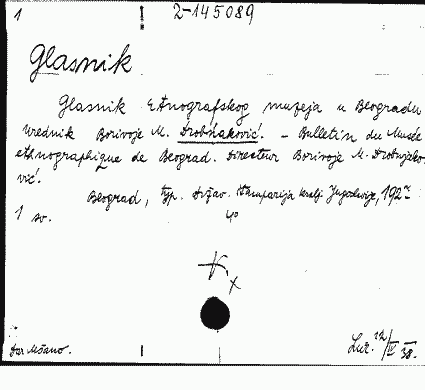 1
2-145089
Glasnik
Glasnik Etnografskog muzeja u Beogradu
urednik Borivoje M. Drobnjaković. - Bulletin du Musée
ethnographique de Beograd. Directeur Borivoje M. Drobnjako-
vić.
Beograd, typ. Državn. štamparija kralj. Jugoslavije, 192
1 sv. 4°
Dar
Luž. 12/IV 38.